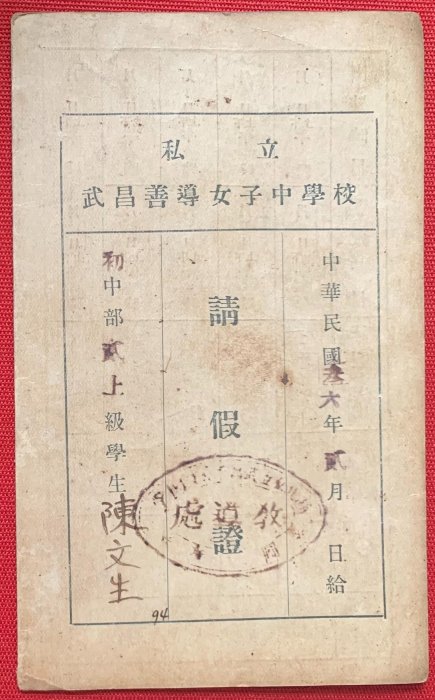 私立
武昌善導女子中學校
中華民國叁六年貳月 日給
請假證
初中部貳上級學生陳文生
教導處
94